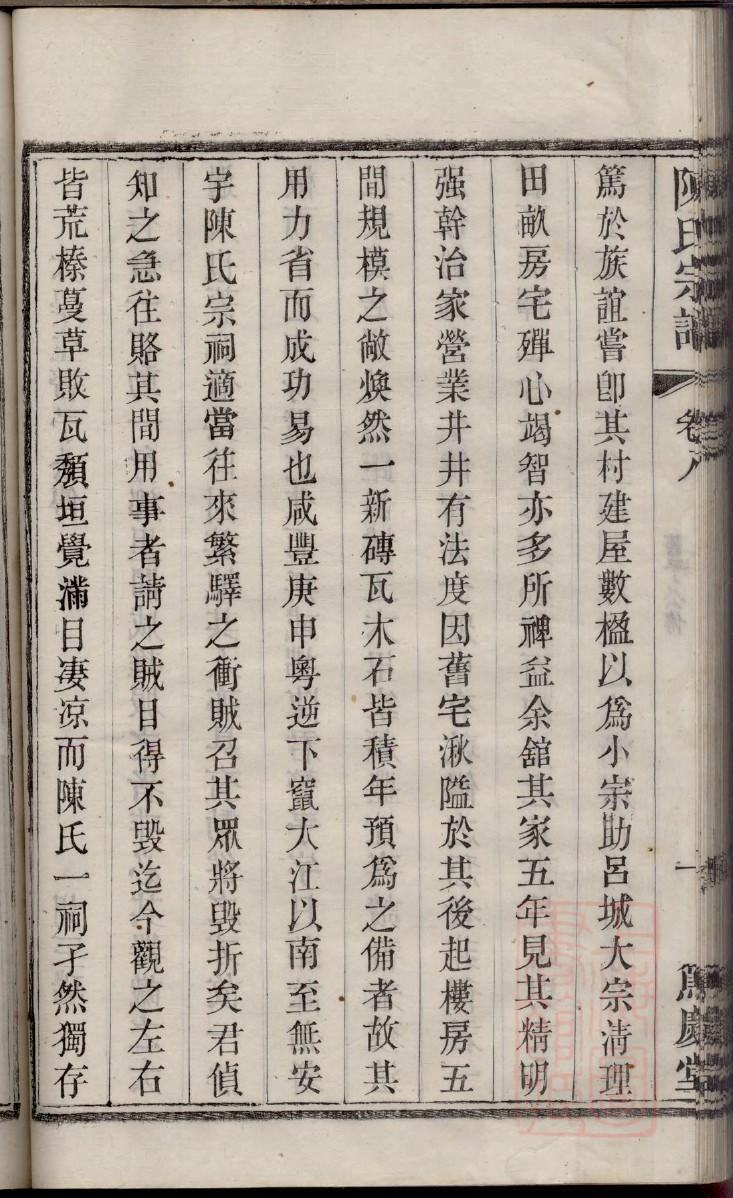 陳氏宗譜 卷八 一 篤慶堂
篤於族誼嘗卽其村建屋數楹以爲小宗助呂城大宗淸理
田畝房宅殫心竭智亦多所裨益余舘其家五年見其精明
强幹治家營業井井有法度因舊宅湫隘於其後起樓房五
間規模之敞煥然一新磚瓦木石皆積年預爲之備者故其
用力省而成功易也咸豐庚申粵逆下竄大江以南至無安
宇陳氏宗祠適當往來繁驛之衝賊召其眾將毀折矣君偵
知之急往賂其間用事者請之賊目得不毀迄今觀之左右
皆荒榛蔓草敗瓦頽垣覺滿目凄凉而陳氏一祠孑然獨存